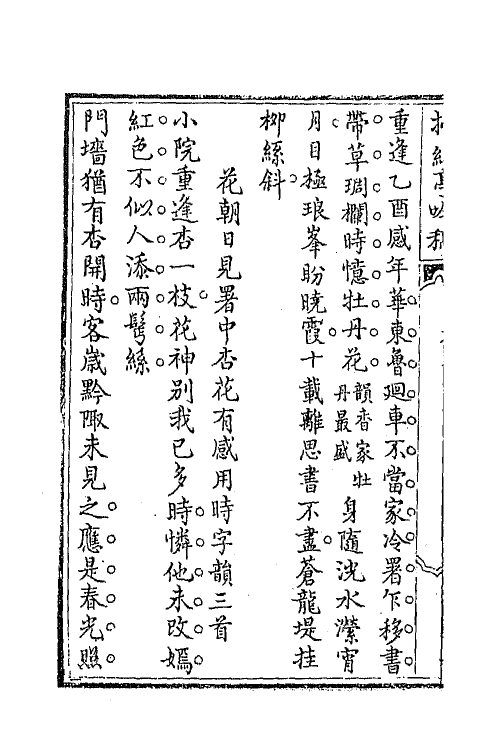 重逢乙酉感年華東魯迴車不當家冷署乍移書
帶草琱欄時憶牡丹花韻香家牡丹最盛身隨洸水瀠宵
月目極琅峯盼曉霞十載離思書不盡蒼龍堤挂
柳絲斜
花朝日見署中杏花有感用時字韻三首
小院重逢杏一枝花神別我已多時憐他未改嫣
紅色不似人添兩鬢絲
門墻猶有杏開時客歲黔陬未見之應是春光煦